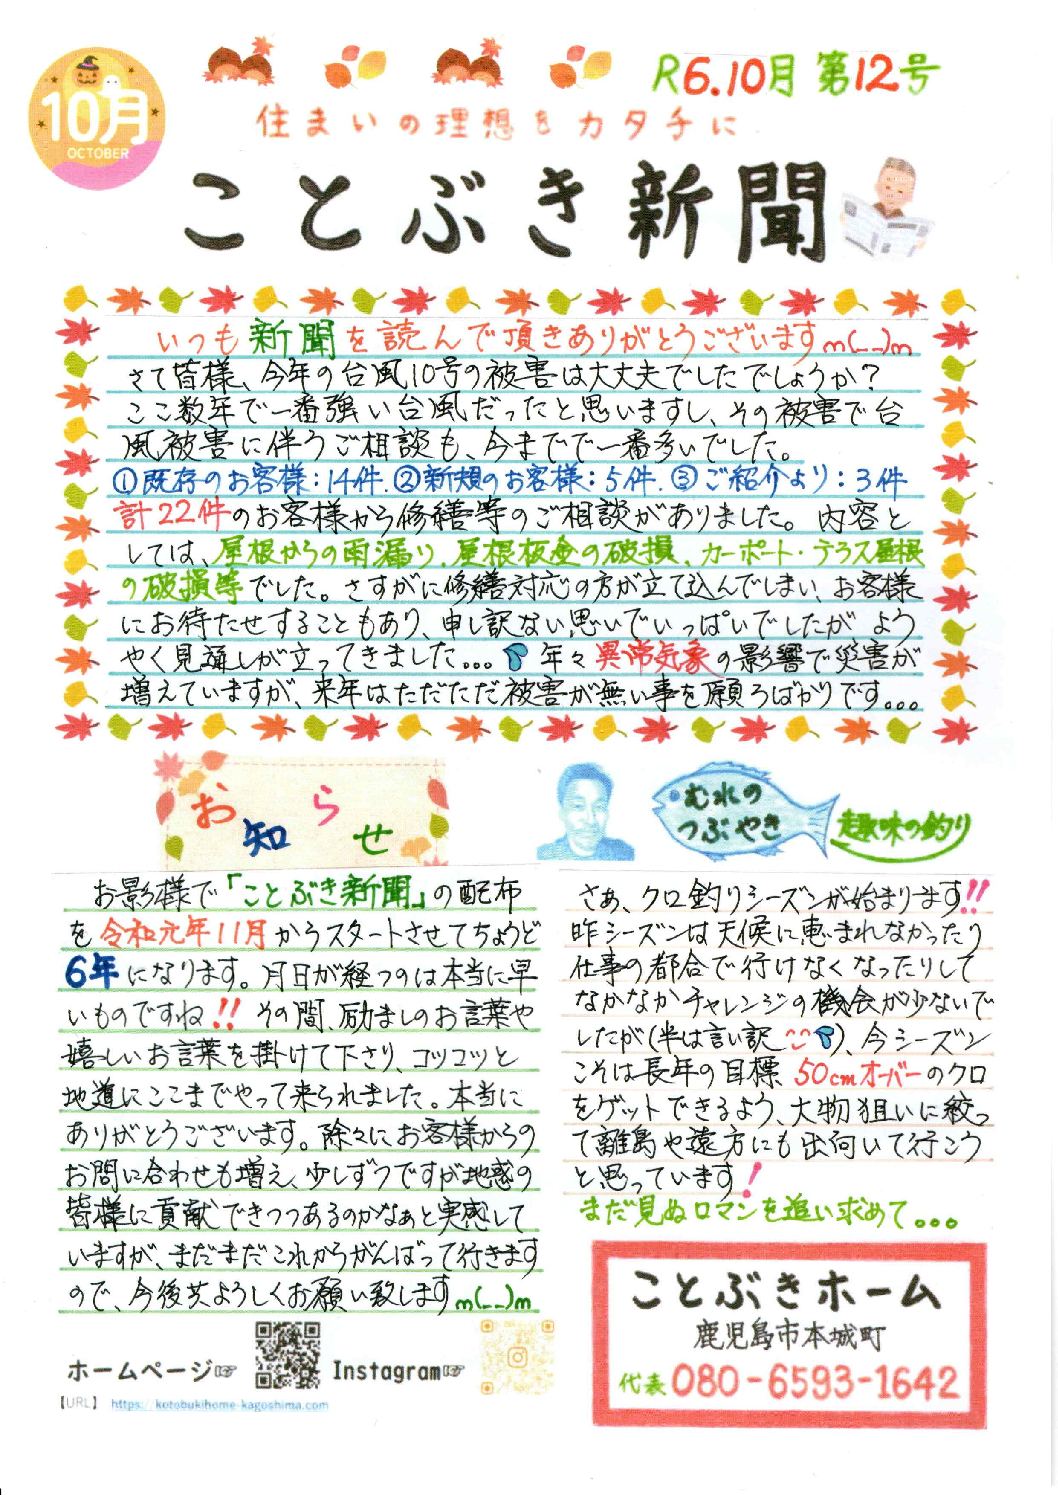 10月
OCTOBER
R6.10月 第12号
住まいの理想をカタチに
ことぶき新聞
いつも新聞を読んで頂きありがとうございますm(__)m
さて皆様、今年の台風10号の被害は大丈夫でしたでしょうか？
ここ数年で一番強い台風だったと思いますし、その被害で台
風被害に伴うご相談も、今までで一番多いでした。
①既存のお客様：14件.②新規のお客様：5件.③ご紹介より：3件
計22件のお客様から修繕等のご相談がありました。内容と
しては、屋根からの雨漏り、屋根板金の破損、カーポート・テラス屋根
の破損等でした。さすがに修繕対応の方が立て込んでしまい、お客様
にお待たせすることもあり、申し訳ない思いでいっぱいでしたが よう
やく見通しが立ってきました… 年々異常気象の影響で災害が
増えていますが、来年はただただ被害が無い事を願うばかりです…
お知らせ
むれの
つぶやき
趣味の釣り
お影様で「ことぶき新聞」の配布
を令和元年11月からスタートさせてちょうど
6年になります。月日が経つのは本当に早
いものですね!! その間、励ましのお言葉や
嬉しいお言葉を掛けて下さり、コツコツと
地道にここまでやって来られました。本当に
ありがとうございます。除々にお客様からの
お問い合わせも増え、少しずつですが地域の
皆様に貢献できつつあるのかなぁと実感して
いますが、まだまだこれからがんばって行きます
ので、今後共よろしくお願い致しますm(__)m
さあ、クロ釣りシーズンが始まります!!
昨シーズンは天候に恵まれなかったり
仕事の都合で行けなくなったりして
なかなかチャレンジの機会が少ないで
したが(半は言い訳)、今シーズン
こそは長年の目標 50cmオーバーのクロ
をゲットできるよう、大物狙いに絞っ
て離島や遠方にも出向いて行こう
と思っています!
まだ見ぬロマンを追い求めて…
ホームページ☞
Instagram☞
【URL】 https://kotobukihome-kagoshima.com
ことぶきホーム
鹿児島市本城町
代表 080-6593-1642